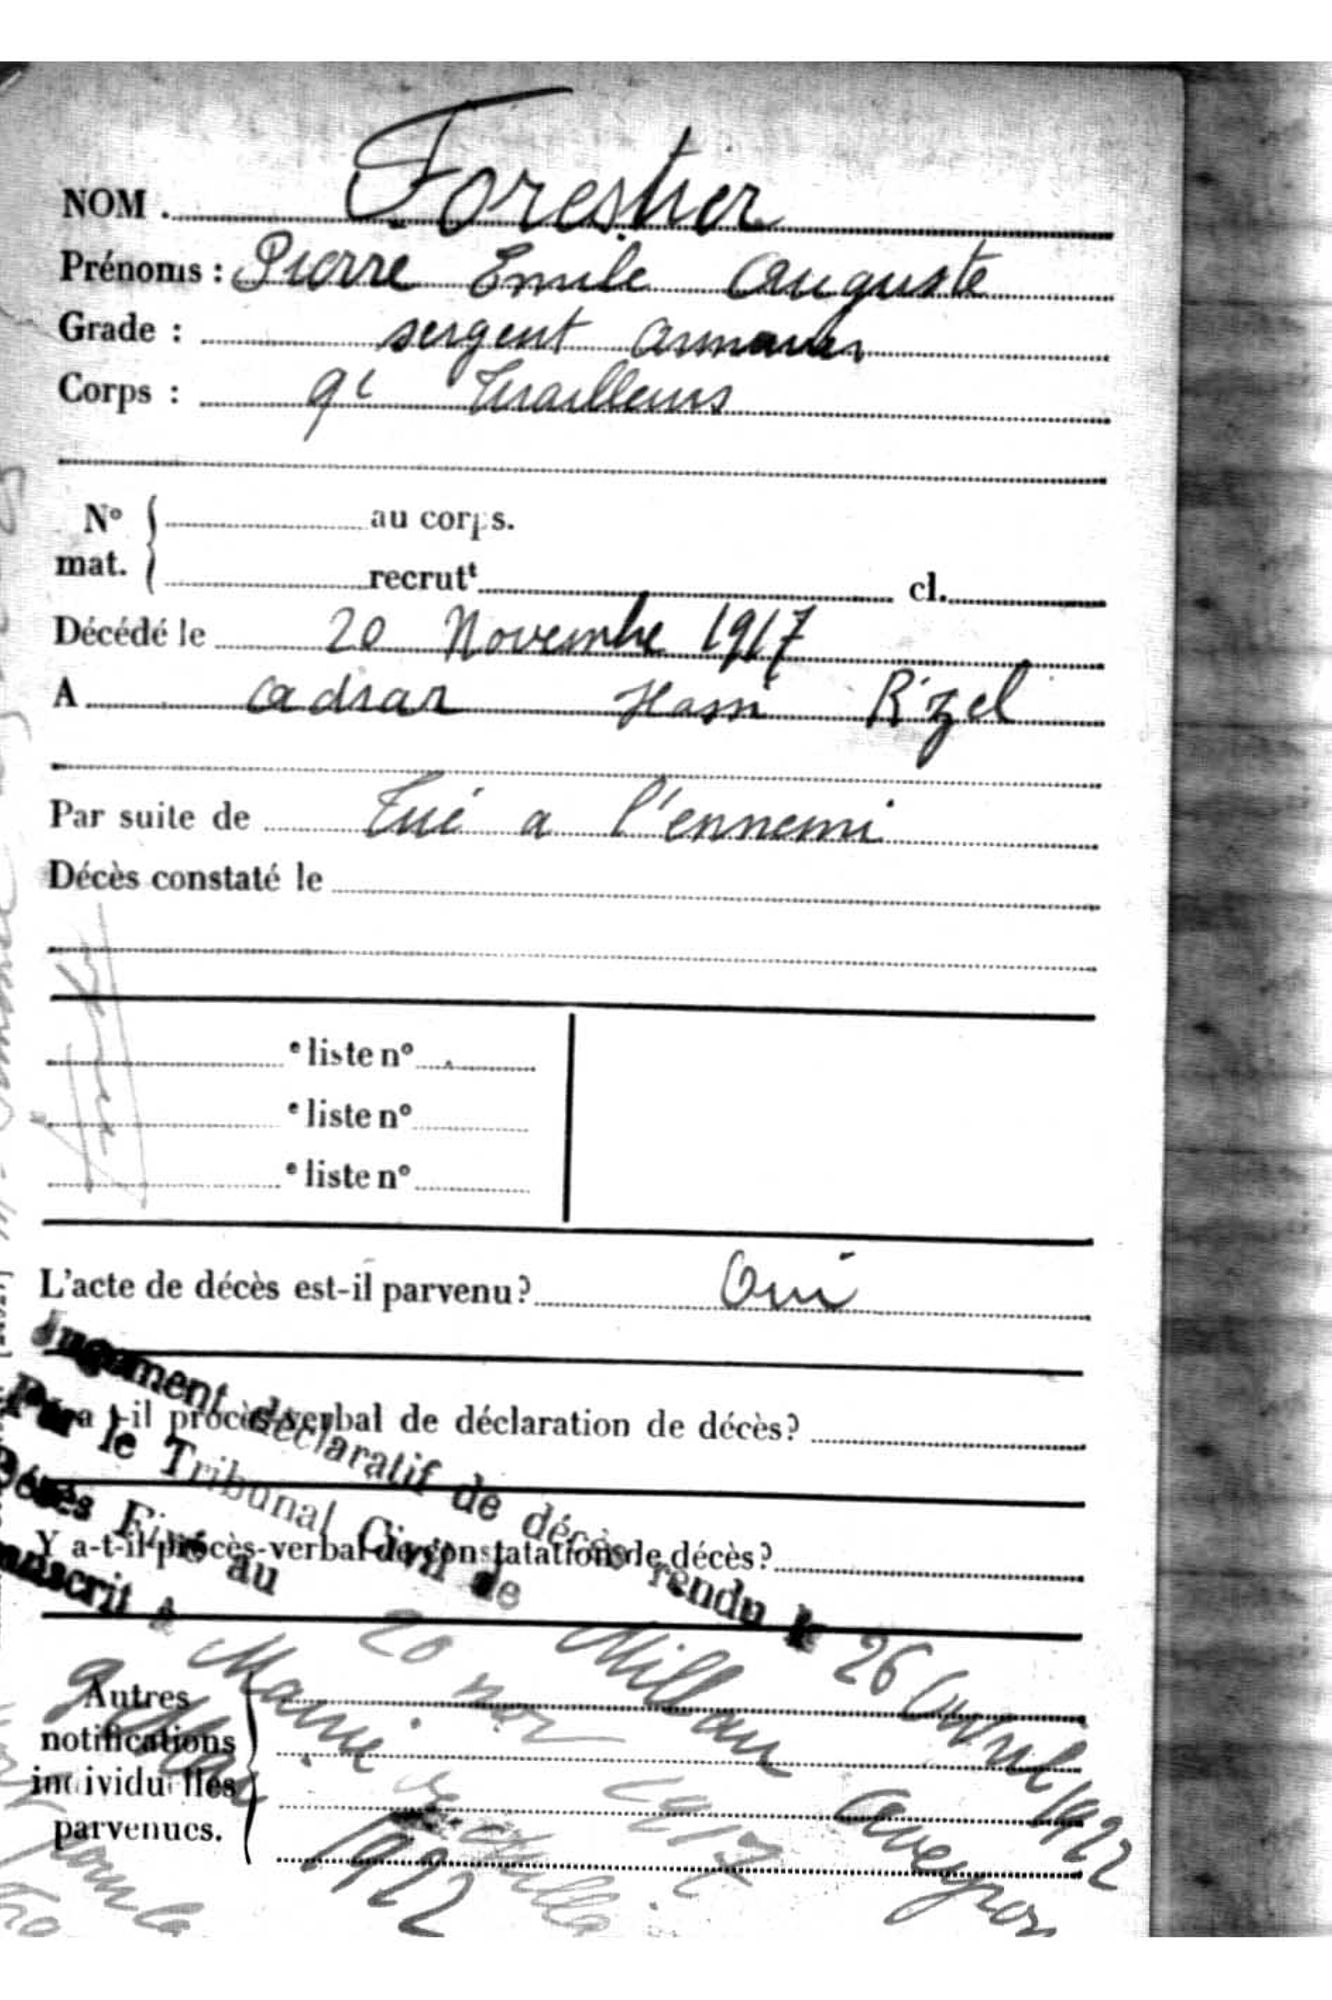 NOM . Forestier
Prénoms : Pierre Emile Auguste
Grade : sergent armurier
Corps : 9e Tirailleurs
N° au corps.
mat. recrutt cl.
Décédé le 20 Novembre 1917
A Adrar Hassi R'zel
Par suite de Tué a l'ennemi
Décès constaté le
e liste n°
e liste n°
e liste n°
L'acte de décès est-il parvenu? Oui
Y a-t-il procès-verbal de déclaration de décès?
Y a-t-il procès-verbal de constatation de décès?
Jugement déclaratif de décès rendu le 26 Avril 1922
Par le Tribunal Civil de Millau Aveyron
Décès Fixé au 20 nov 1917
Transcrit à Mairie
1922
Autres
notifications
individuelles
parvenues.